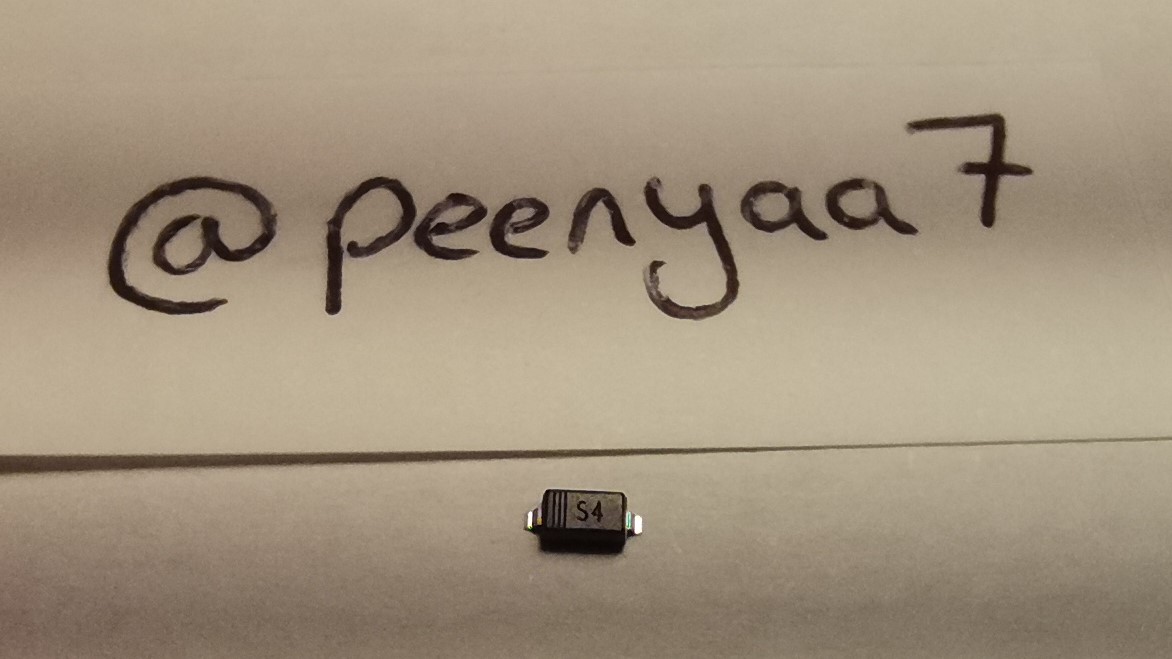 @peenyaa7
S4